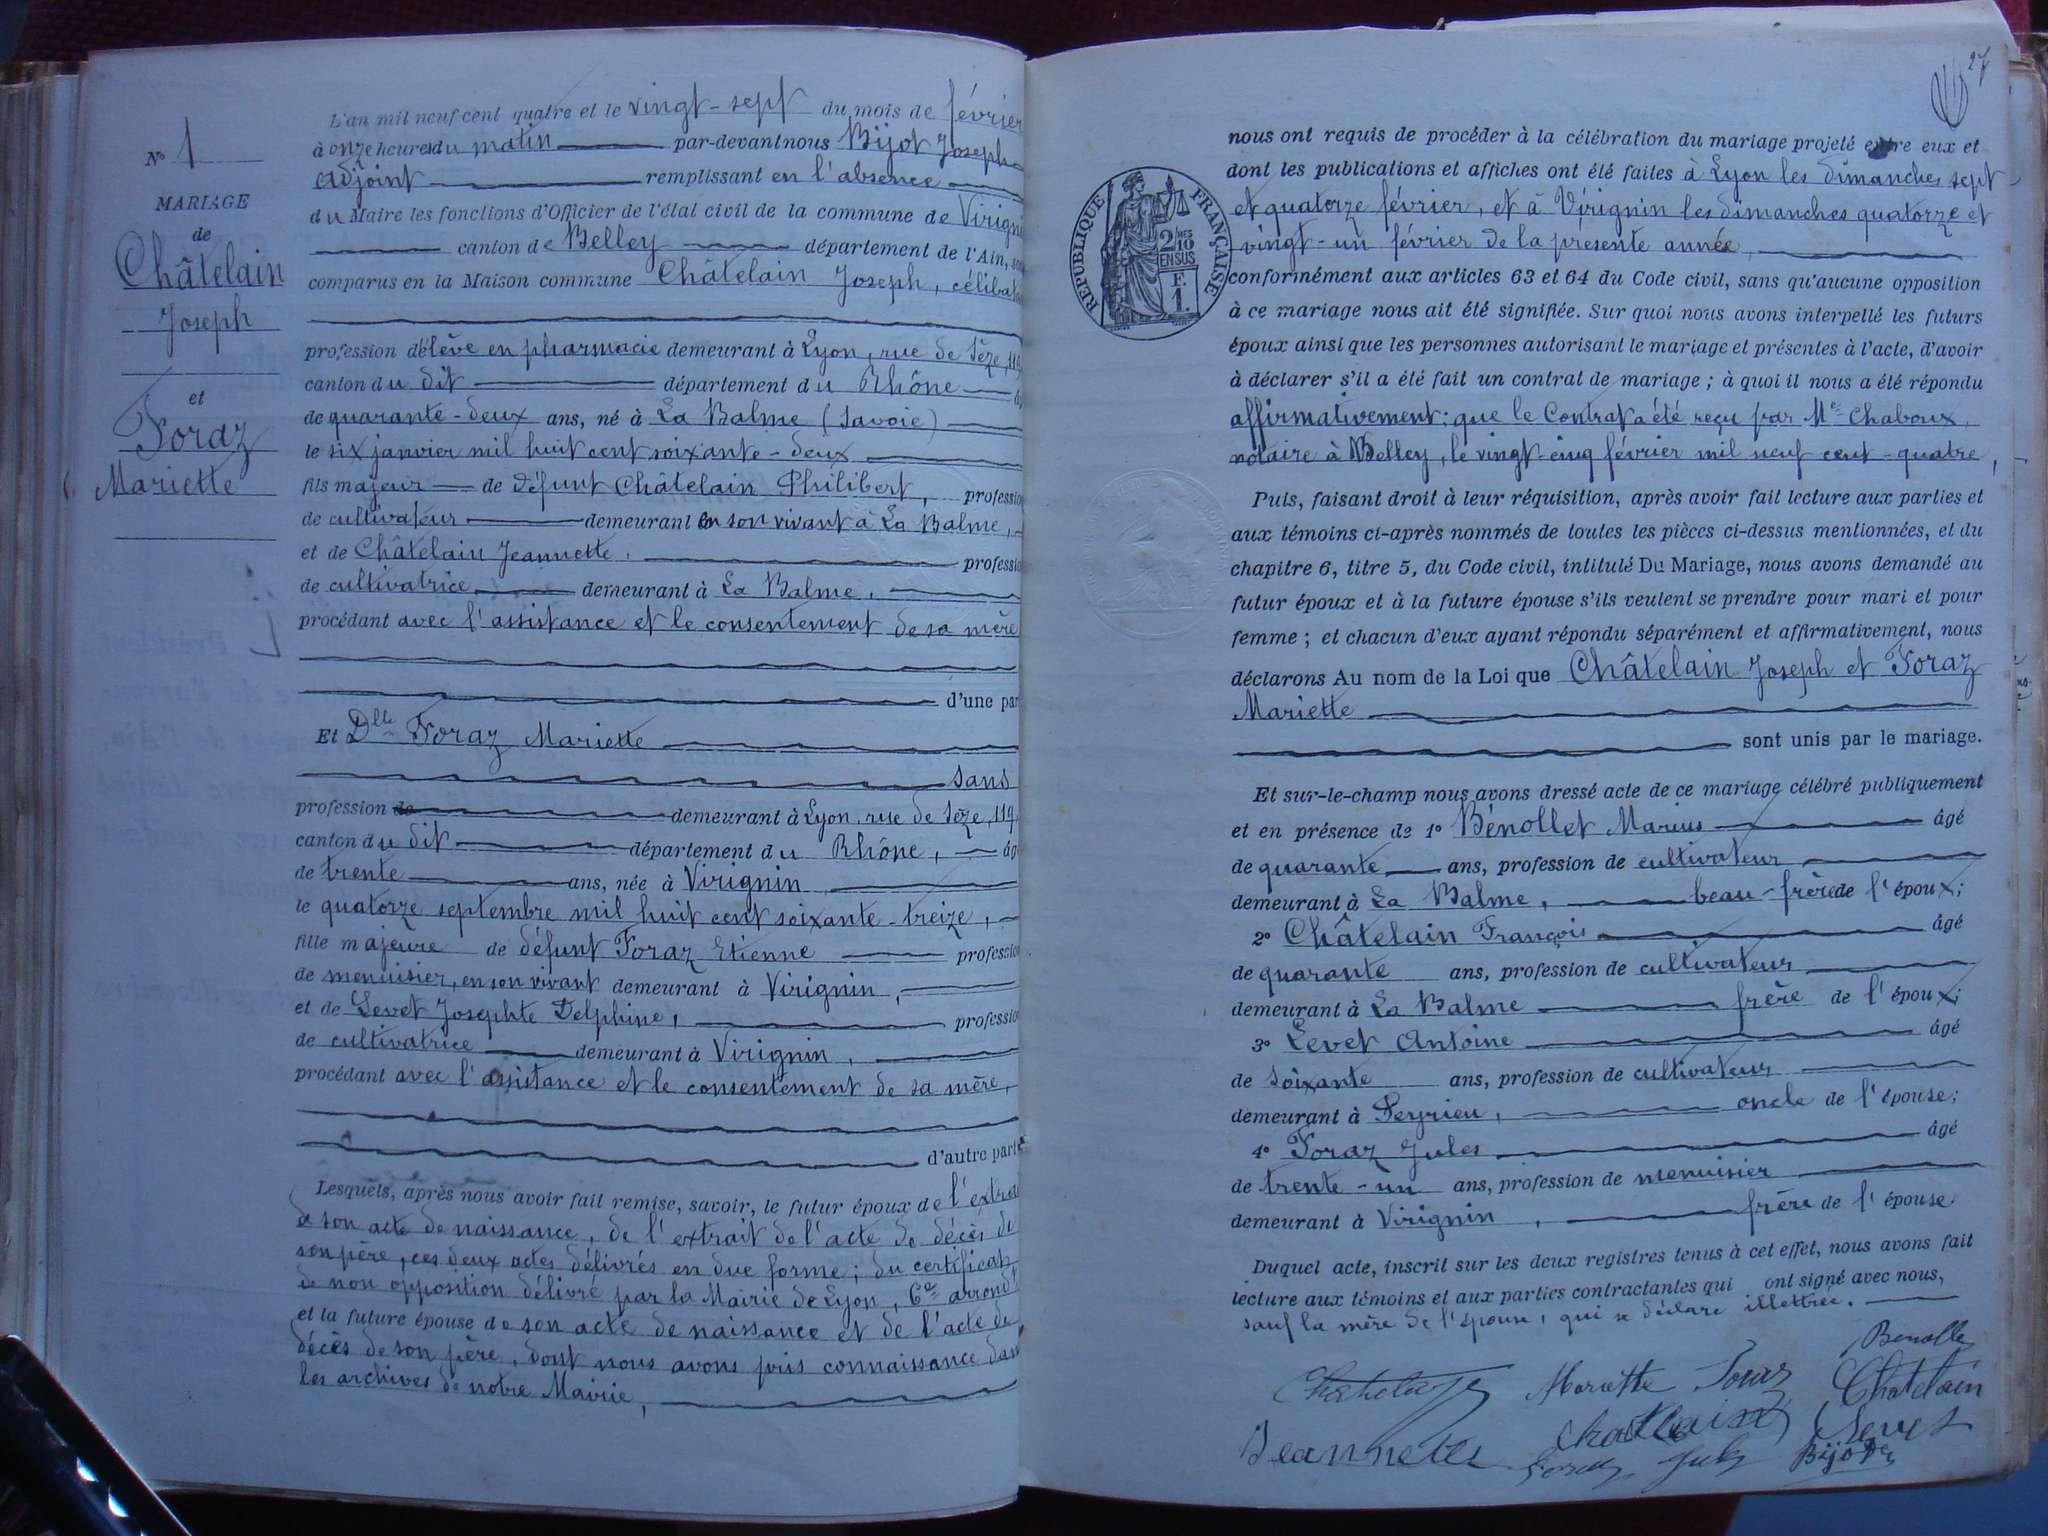 N° 1
MARIAGE
de
Châtelain
Joseph
et
Foraz
Mariette
L'an mil neuf cent quatre et le vingt-sept du mois de février
à onze heures du matin par-devant nous Bijot Joseph
adjoint remplissant en l'absence
du Maire les fonctions d'Officier de l'état civil de la commune de Virigni
canton de Belley département de l'Ain, so
comparus en la Maison commune Châtelain Joseph, céliba
profession d'élève en pharmacie demeurant à Lyon, rue de Sèze, 119
canton du dit département du Rhône
de quarante-deux ans, né à La Balme (Savoie)
le six janvier mil huit cent soixante-deux
fils majeur de défunt Châtelain Philibert, profession
de cultivateur demeurant en son vivant à La Balme,
et de Châtelain Jeannette, professio
de cultivatrice demeurant à La Balme,
procédant avec l'assistance et le consentement de sa mère
d'une par
Et Dlle Foraz Mariette
sans
profession de demeurant à Lyon, rue de Sèze, 119
canton du dit département du Rhône, âg
de trente ans, née à Virignin
le quatorze septembre mil huit cent soixante-treize,
fille majeure de défunt Foraz Etienne profession
de menuisier, en son vivant demeurant à Virignin,
et de Levet Josephte Delphine, profession
de cultivatrice demeurant à Virignin,
procédant avec l'assistance et le consentement de sa mère,
d'autre part
Lesquels, après nous avoir fait remise, savoir, le futur époux de l'extra
de son acte de naissance, de l'extrait de l'acte de décès de
son père, ces deux actes délivrés en due forme; du certificat
de non opposition délivré par la Mairie de Lyon, 6e arrondt
et la future épouse de son acte de naissance et de l'acte de
décès de son père, dont nous avons pris connaissance dans
les archives de notre Mairie,
27
RÉPUBLIQUE FRANÇAISE
2/10 EN SUS
F. 1.
nous ont requis de procéder à la célébration du mariage projeté entre eux et
dont les publications et affiches ont été faites à Lyon les dimanches sept
et quatorze février, et à Virignin les dimanches quatorze et
vingt-un février de la présente année,
conformément aux articles 63 et 64 du Code civil, sans qu'aucune opposition
à ce mariage nous ait été signifiée. Sur quoi nous avons interpellé les futurs
époux ainsi que les personnes autorisant le mariage et présentes à l'acte, d'avoir
à déclarer s'il a été fait un contrat de mariage; à quoi il nous a été répondu
affirmativement: que le Contrat a été reçu par Me Chaboux,
notaire à Belley, le vingt-cinq février mil neuf cent-quatre,
Puis, faisant droit à leur réquisition, après avoir fait lecture aux parties et
aux témoins ci-après nommés de toutes les pièces ci-dessus mentionnées, et du
chapitre 6, titre 5, du Code civil, intitulé Du Mariage, nous avons demandé au
futur époux et à la future épouse s'ils veulent se prendre pour mari et pour
femme; et chacun d'eux ayant répondu séparément et affirmativement, nous
déclarons Au nom de la Loi que Châtelain Joseph et Foraz
Mariette
sont unis par le mariage.
Et sur-le-champ nous avons dressé acte de ce mariage célébré publiquement
et en présence de 1° Bénollet Marius âgé
de quarante ans, profession de cultivateur
demeurant à La Balme, beau-frère de l'époux;
2° Châtelain François âgé
de quarante ans, profession de cultivateur
demeurant à La Balme frère de l'époux;
3° Levet Antoine âgé
de soixante ans, profession de cultivateur
demeurant à Peyrieu, oncle de l'épouse;
4° Foraz Jules âgé
de trente-un ans, profession de menuisier
demeurant à Virignin, frère de l'épouse
Duquel acte, inscrit sur les deux registres tenus à cet effet, nous avons fait
lecture aux témoins et aux parties contractantes qui ont signé avec nous,
sauf la mère de l'épouse, qui se déclare illettrée.
Benolle
Mariette Foraz Chatelain
Chatelain Levet
Jeannete Foraz Jules Bijot